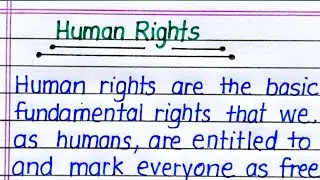 Human Rights
Human rights are the basic
fundamental rights that we,
as humans, are entitled to
and mark everyone as free